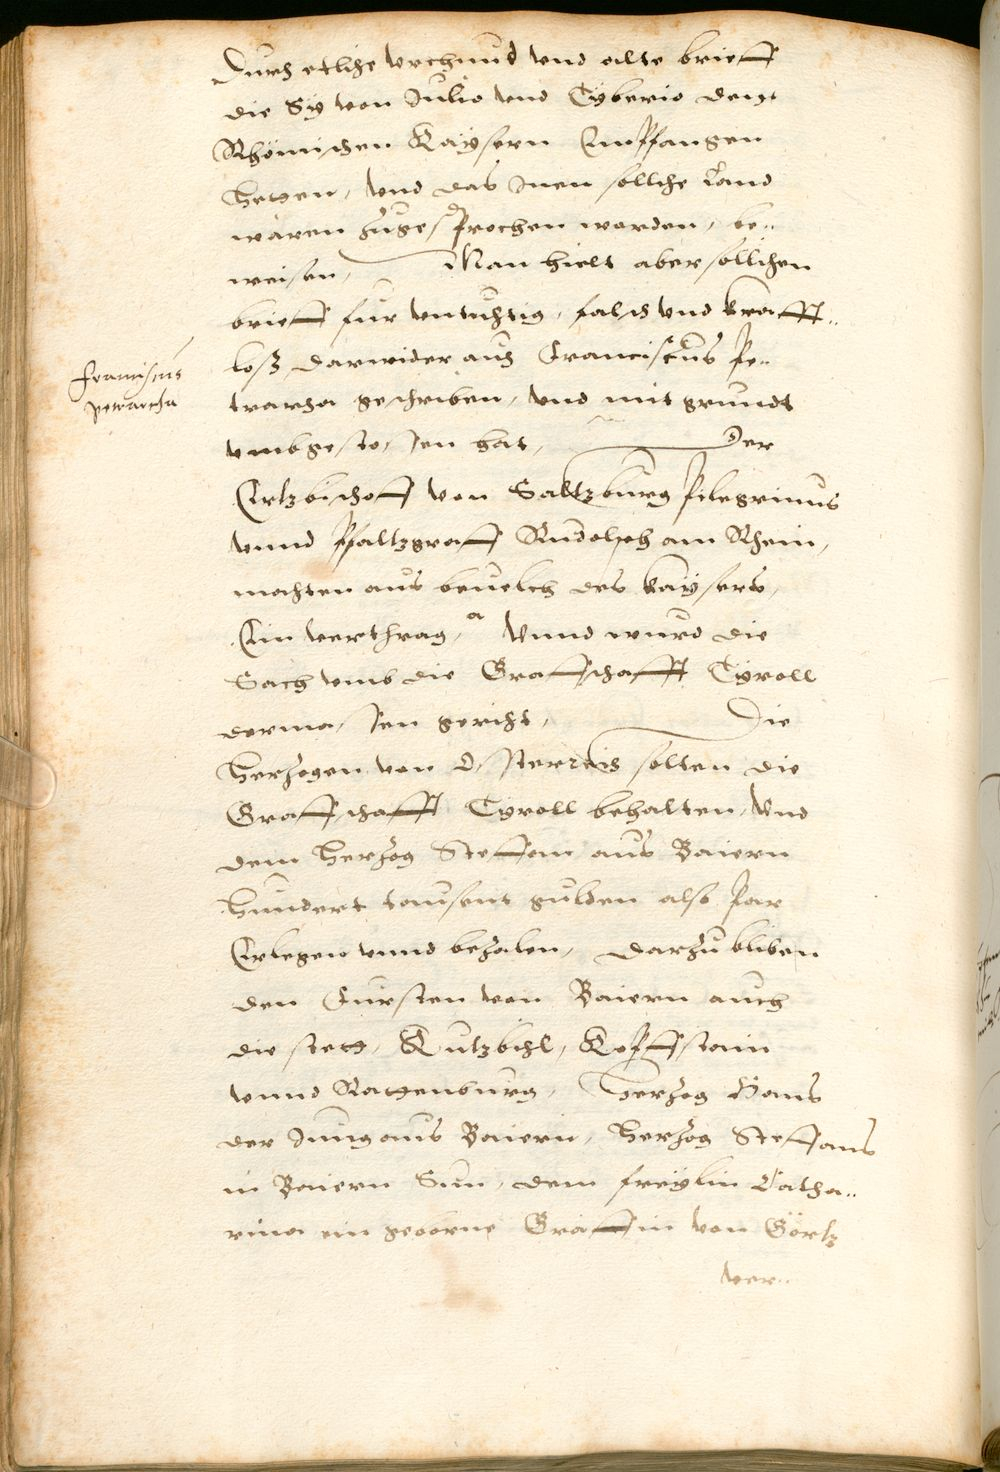 Durch etliche vrchund vnd alte brieff
die Sy von Julio vnd Tyberio den
Rhömischen Kaysern Empfangen
hetten, vnd das Jnen sollche Land
wären zuegesprochen worden, be..
weisen, Man hielt aber söllichen
brieff für vntuchtig, falsch vnd krafft..
loß, darwider auch Franciscus Pe..
Franciscus
petrarcha
tracha geschriben, vnd mit grundt
vmbgestossen hat, Der
Ertzbischoff von Saltzburg Pilegrinus
vnnd Pfaltzgraff Rudolph am Rhein,
machten aus beuelch des kaysers,
Ein verthrag, a Vnnd wurd die
Sach vmb die Graffschafft Tyroll
dermassen gericht, Die
Herzogen von Össterreich solten die
Graffschafft Tyroll behalten, Vnd
dem Herzog Steffan aus Baiern
Hundert tausent gulden also par
Erlegen vnnd bezalen, darzu bliben
den Fürsten von Baiern auch
die stett, Kutzbihl, Kopffstain
vnnd Rattenburg, Herzog Hans
der Jung aus Baiern, Herzog Steffans
in Baiern Sun, dem freylin Catha..
rina ein geborne Gräffin von Görtz
ver..